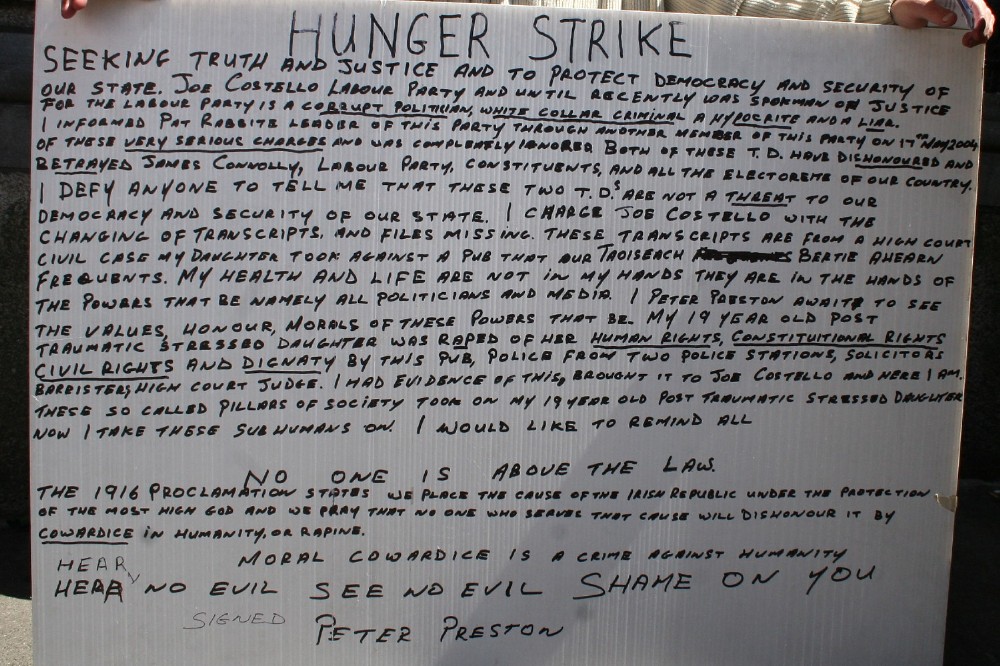 HUNGER STRIKE
SEEKING TRUTH AND JUSTICE AND TO PROTECT DEMOCRACY AND SECURITY OF
OUR STATE. JOE COSTELLO LABOUR PARTY AND UNTIL RECENTLY WAS SPOKMAN ON JUSTICE
FOR THE LABOUR PARTY IS A CORRUPT POLITICIAN, WHITE COLLAR CRIMINAL A HYPOCRITE AND A LIAR.
I INFORMED PAT RABBITE LEADER OF THIS PARTY THROUGH ANOTHER MEMBER OF THIS PARTY ON 17TH MAY 2004
OF THESE VERY SERIOUS CHARGES AND WAS COMPLETELY IGNORED BOTH OF THESE T.D. HAVE DISHONOURED AND
BETRAYED JAMES CONNOLLY, LABOUR PARTY, CONSTITUENTS, AND ALL THE ELECTOREME OF OUR COUNTRY.
I DEFY ANYONE TO TELL ME THAT THESE TWO T.D.S ARE NOT A THREAT TO OUR
DEMOCRACY AND SECURITY OF OUR STATE. I CHARGE JOE COSTELLO WITH THE
CHANGING OF TRANSCRIPTS, AND FILES MISSING. THESE TRANSCRIPTS ARE FROM A HIGH COURT
CIVIL CASE MY DAUGHTER TOOK AGAINST A PUB THAT OUR TAOISEACH BERTIE AHEARN
FREQUENTS. MY HEALTH AND LIFE ARE NOT IN MY HANDS THEY ARE IN THE HANDS OF
THE POWERS THAT BE NAMELY ALL POLITICIANS AND MEDIA. I PETER PRESTON AWAIT TO SEE
THE VALUES, HONOUR, MORALS OF THESE POWERS THAT BE. MY 19 YEAR OLD POST
TRAUMATIC STRESSED DAUGHTER WAS RAPED OF HER HUMAN RIGHTS, CONSTITUITIONAL RIGHTS
CIVIL RIGHTS AND DIGNATY BY THIS PUB, POLICE FROM TWO POLICE STATIONS, SOLICITORS
BARRISTERS, HIGH COURT JUDGE. I HAD EVIDENCE OF THIS, BROUGHT IT TO JOE COSTELLO AND HERE I AM.
THESE SO CALLED PILLARS OF SOCIETY TOOK ON MY 19 YEAR OLD POST TRAUMATIC STRESSED DAUGHTER
NOW I TAKE THESE SUBHUMANS ON. I WOULD LIKE TO REMIND ALL
NO ONE IS ABOVE THE LAW.
THE 1916 PROCLAMATION STATES WE PLACE THE CAUSE OF THE IRISH REPUBLIC UNDER THE PROTECTION
OF THE MOST HIGH GOD AND WE PRAY THAT NO ONE WHO SERVES THAT CAUSE WILL DISHONOUR IT BY
COWARDICE IN HUMANITY, OR RAPINE.
MORAL COWARDICE IS A CRIME AGAINST HUMANITY
HEAR
HEAR NO EVIL SEE NO EVIL SHAME ON YOU
SIGNED PETER PRESTON